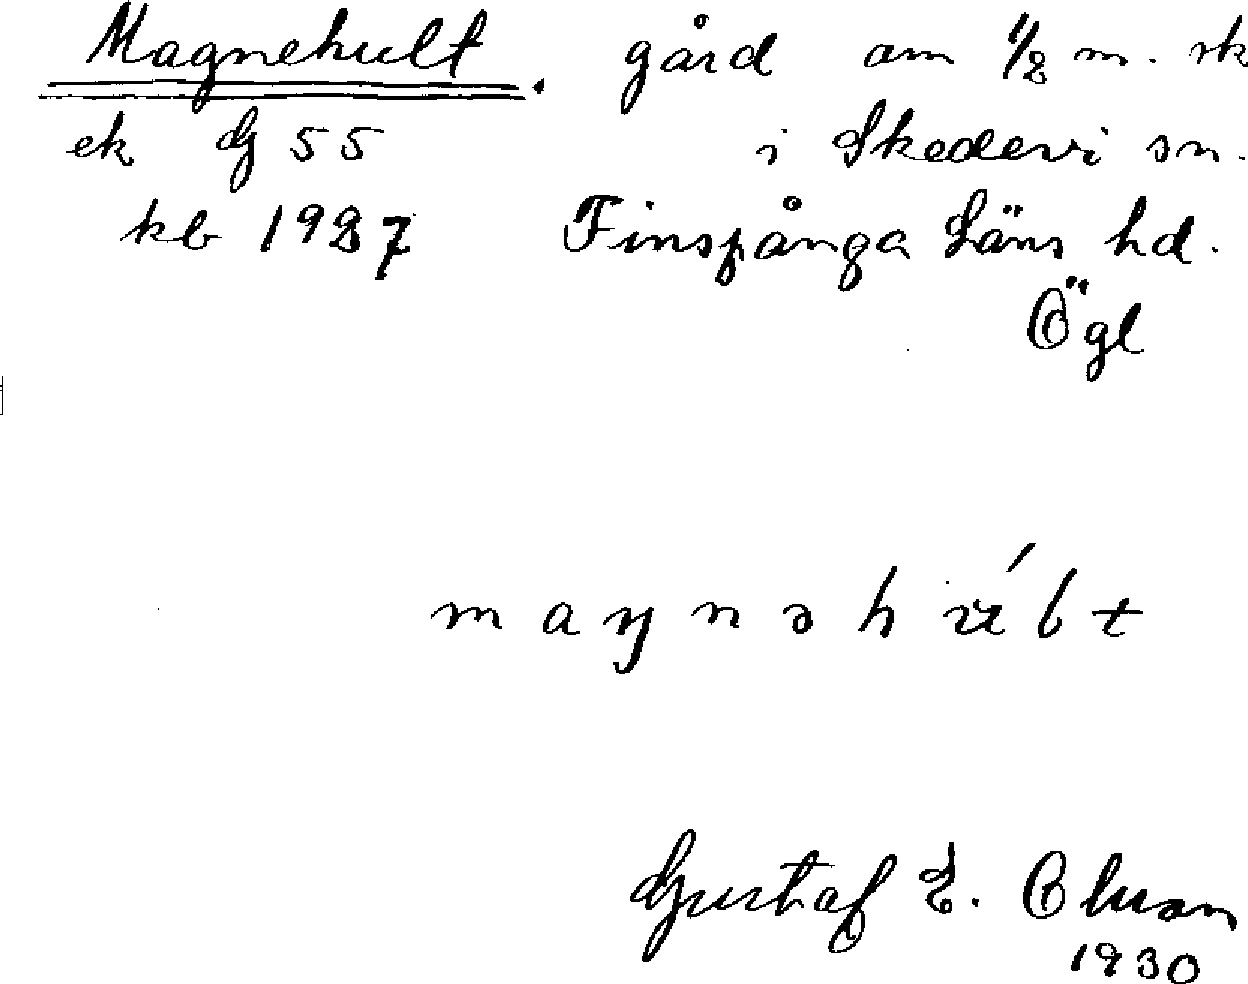 Magnehult. gård om 1/2 m. sk
ek G 55 i Skedevi sn.
kb 1927 Finspånga Läns hd.
Ögl
m a y n ə h ú b t
Gustaf E. Olsson
1930